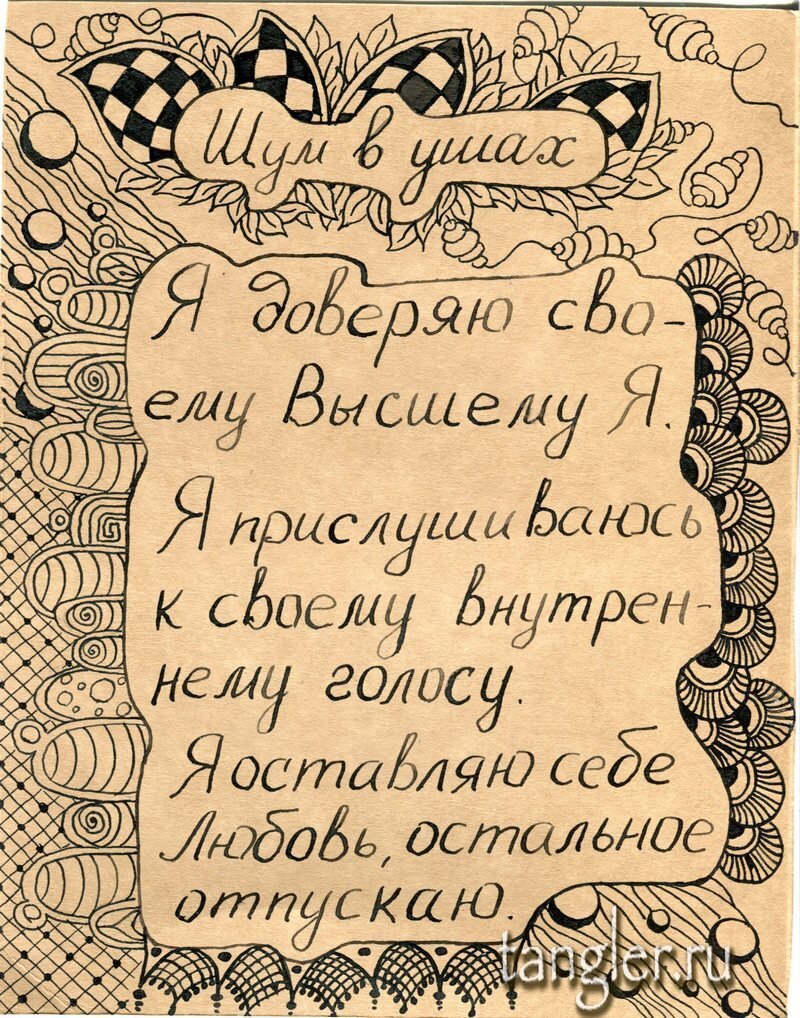 Шум в ушах
Я доверяю сво-
ему Высшему Я.
Я прислушиваюсь
к своему внутрен-
нему голосу.
Я оставляю себе
Любовь, остальное
отпускаю.
tangler.ru